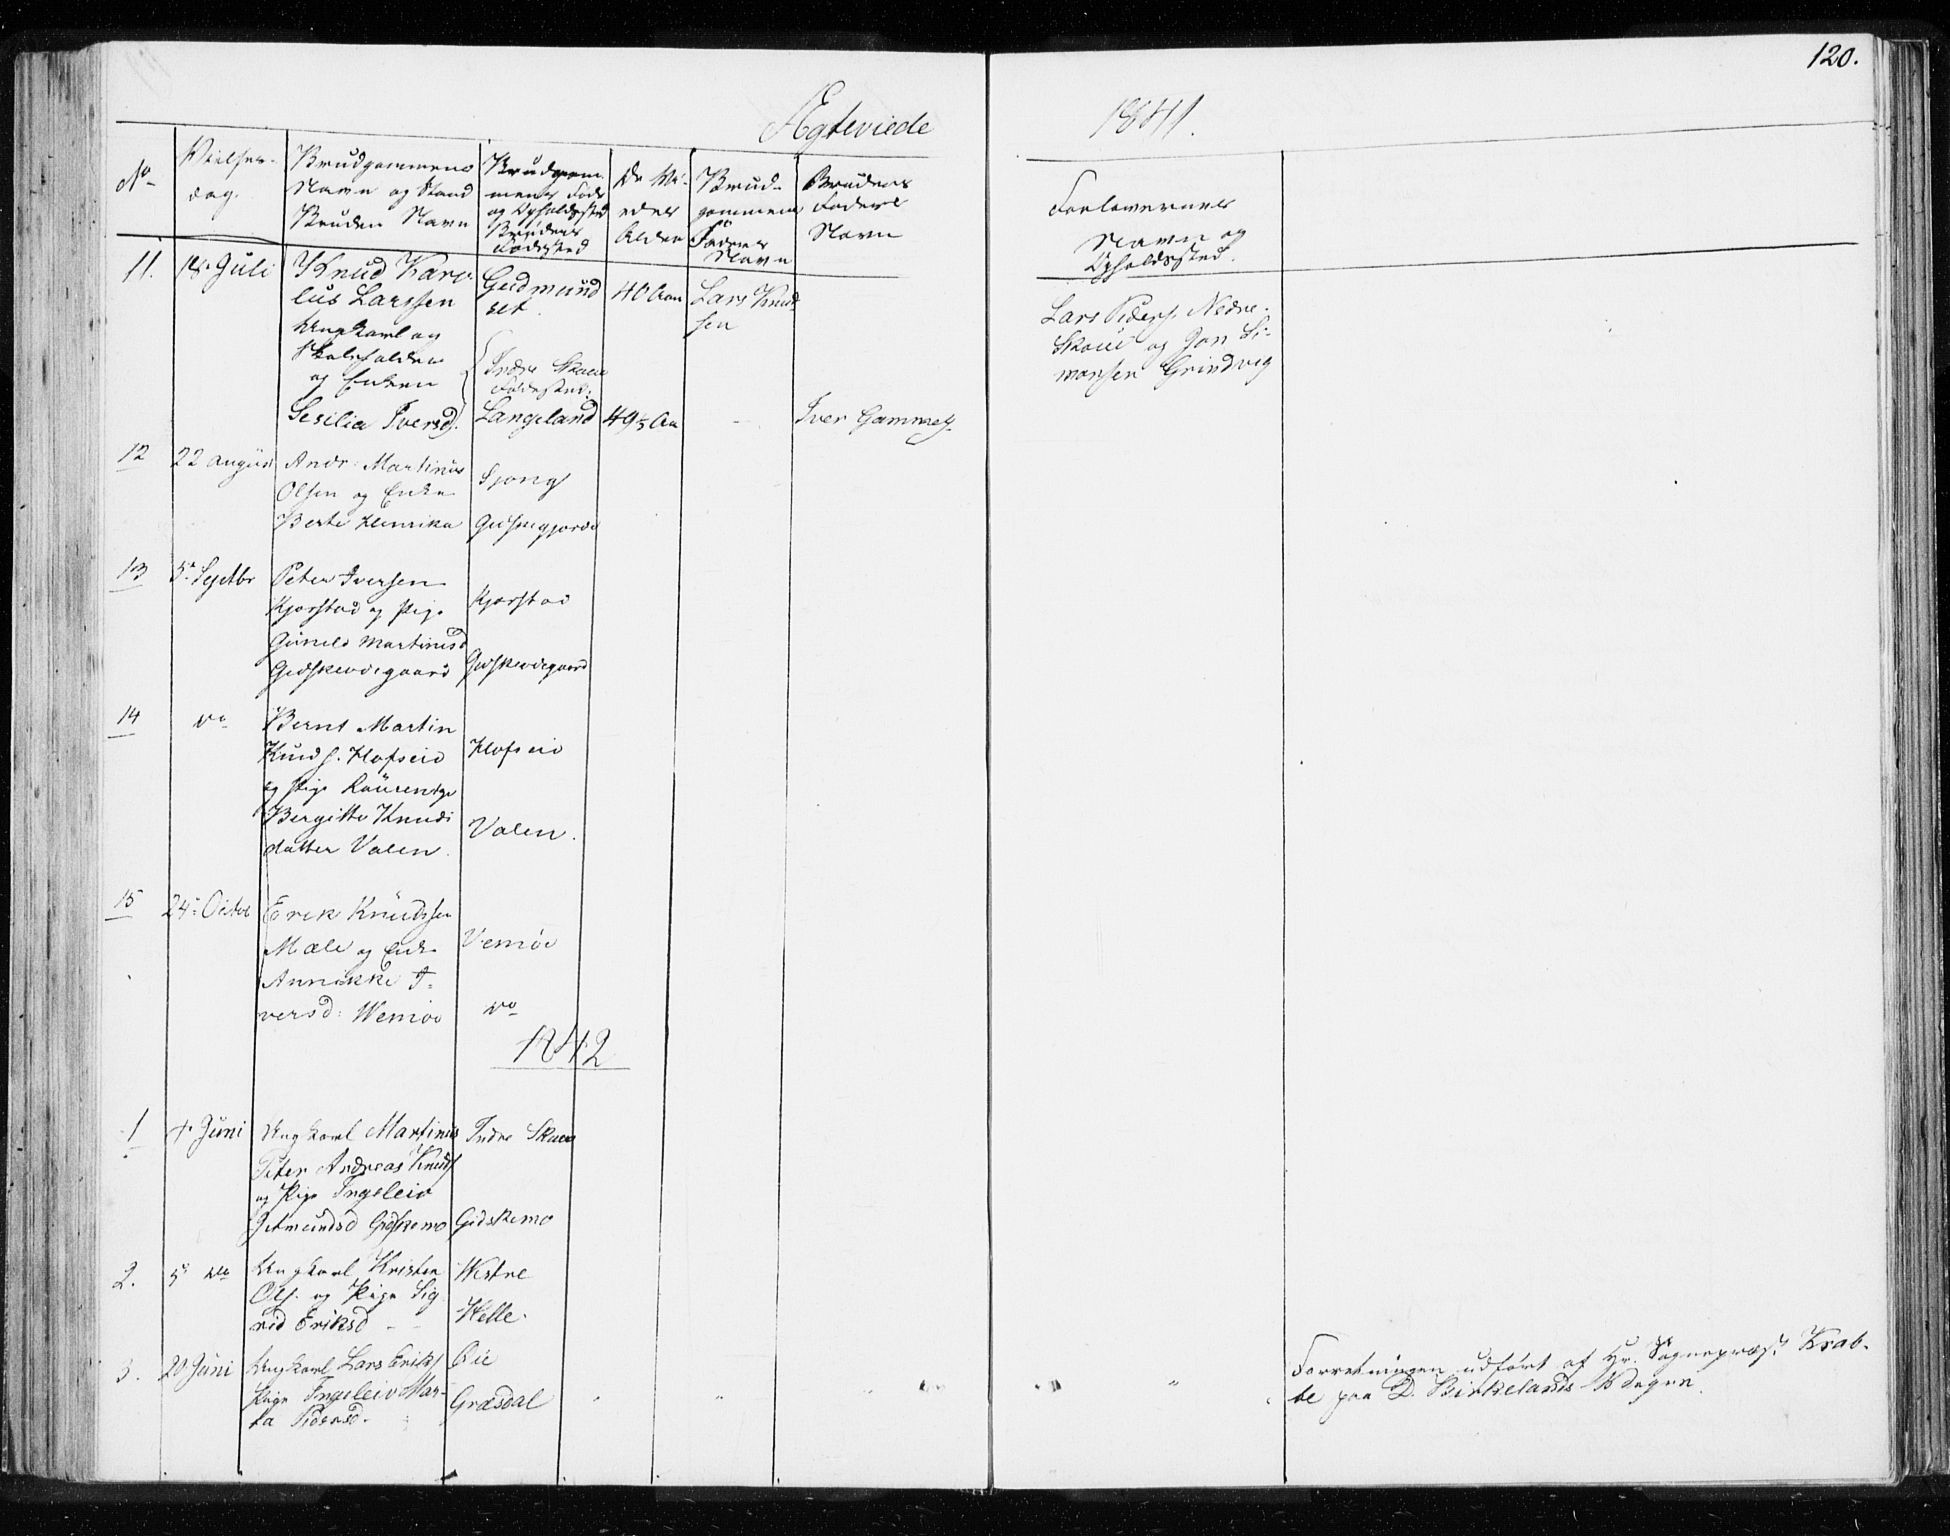 120.
Ægteviede
1841.
No
Vielses-
dag.
Brudgommens
Navn og Stand
Bruden Navn
Brudgom-
mens Føde
og Opholdssted
Brudens
Fødested
De Vi-
edes
Alder
Brud-
gommens
Faders
Navn
Brudens
Faders
Navn
Forlovernes
Navn og
Opholdssted.
11.
18. Juli
Knud Karo-
lus Larssen
Ungkarl og
Skoleholder
og Enken
Sesilia Iversd.
Gudmund
set.
Indre Skaue
Fødested:
Langeland
40 Aar
49½ Aar
Lars Knud
sen
Iver Gammels.
Lars Peders. Nedre-
Skoue og Jon Si-
monsen Grindvig
12
22 August
Andr: Martinus
Olsen og Enke
Berte Henrika
Sjong
Gidskegjorde
13
5te Septbr
Peter Iversen
Kjørstad og Pige
Gunild Martinusd
Gidskeodegaard
Kjørstad
Gidskeodegaard
14
do
Bernt Martin
Knuds. Hofseid
og Pige Laurentze
Bergitte Knuds
datter Valen.
Hofseid
Valen.
15
24de Octbr
Erik Knudssen
Mæle og Enke
Annikke I-
versd: Wemøe
Vemøe
do
1842
1
4. Juni
Ungkarl Martinus
Peter Andreas Knuds
og Pige Ingeleiv
Getmundsd Gidskemo
Indre Skaue
Gidskemo
2.
5 do
Ungkarl Kristen
Ols. og Pige Sig
rid Eriksd
Westre
Helle.
3.
20 Juni
Ungkarl Lars Eriks
Pige Ingeleiv Mar-
ta Pedersd.
Øie
Græsdal
Forretningen udført af Hr. Sognepræst Krab-
be paa D. Birkelands Vegne.